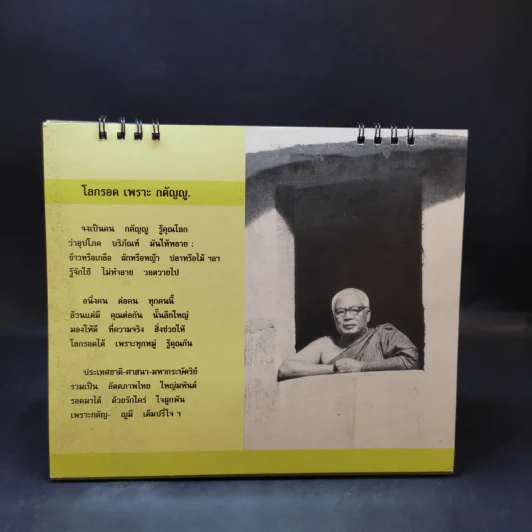 โลกรอด เพราะ กตัญญู.
จงเป็นคน กตัญญู รู้คุณโลก
ว่าอุปโภค บริภัณฑ์ มันให้หลาย :
ข้าวหรือเกลือ ผักหรือหญ้า ปลาหรือไม้ ฯลฯ
รู้จักใช้ ไม่ทำลาย วอดวายไป
อนึ่งคน ต่อคน ทุกคนนี้
ล้วนแต่มี คุณต่อกัน นั้นลึกใหญ่
มองให้ดี ที่ความจริง สิ่งช่วยให้
โลกรอดได้ เพราะทุกหมู่ รู้คุณกัน
ประเทศชาติ-ศาสนา-มหากระษัตริย์
รวมเป็น อัตตภาพไทย ใหญ่มหันต์
รอดมาได้ ด้วยรักใคร่ ใจผูกพัน
เพราะกตัญ- ญูมี เต็มปรี่ใจ ฯ